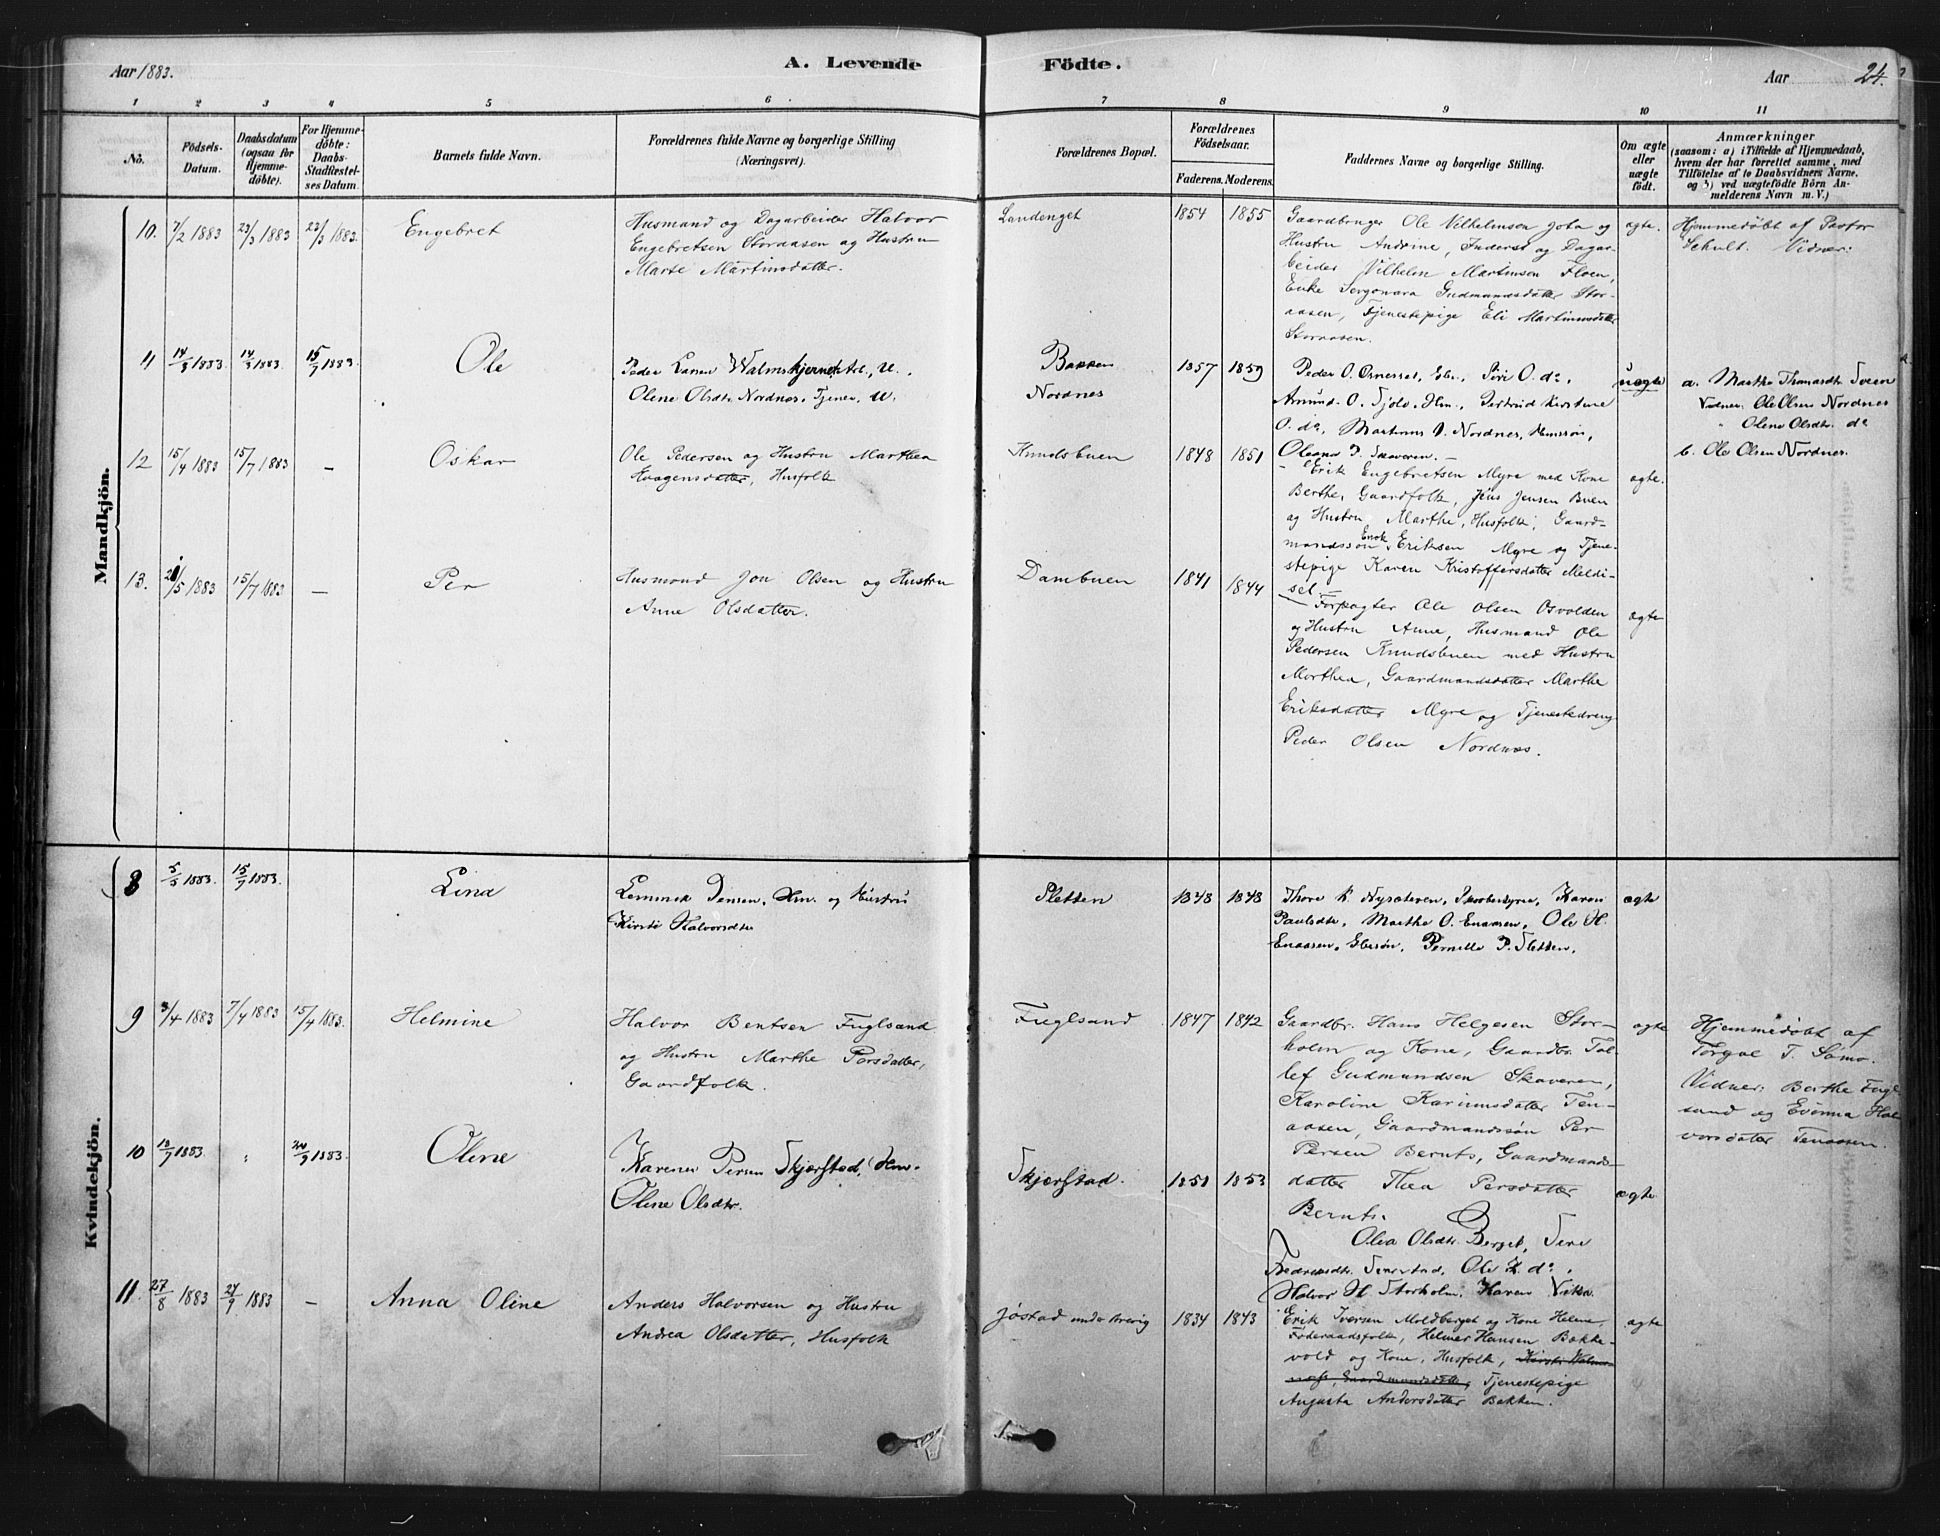 Aar 1883.
A. Levende
Födte.
Aar
24.
1
2
3
4
5
6
7
8
9
10
11
No.
Födsels-
Datum.
Daabsdatum
(ogsaa for
Hjemme-
döbte).
For Hjemme-
döbte:
Daabs-
Stadfæstel-
ses Datum.
Barnets fulde Navn.
Forældrenes fulde Navne og borgerlige Stilling
(Næringsvei).
Forældrenes Bopæl.
Forældrenes
Födselsaar.
Faderens.
Moderens.
Faddernes Navne og borgerlige Stilling.
Om ægte
eller
uægte
födt.
Anmærkninger
(saasom: a) i Tilfælde af Hjemmedaab,
hvem der har forrettet samme, med
Tilföielse af to Daabsvidners Navne.
og b) ved uægtefödte Börn An-
melderens Navn m. V.)
Mandkjön.
10.
7/2 1883
23/3 1883
23/3 1883.
Engebret
Husmand og Dagarbeider Halvor
Engebretsen Storaasen og Hustru
Marte Martinsdatter.
Landenget
1854
1855
Gaardbruger Ole Vilhelmsen Jota og
Hustru Andrine, Inderst og Dagar-
beider Vilhelm Martinsen Floen,
Enke Gudmundsdatter Stor-
aasen, Tjenestepige Eli Martinusdatter
Storaasen.
ægte.
Hjemmedøbt af Pastor
Schult. Vidner:
11
14/3 1883
14/3 1883.
15/7 1883
Ole
Peder Larsen Arb., U.,
Olene Olsdtr Nordnes, Tjener, U.
Bakken
Nordnes
1857
1859
Peder O. Siri O. do,
Amund O. Hm., Gertrud Kirstine
O. do, O. Nordnes,
Oleanna J. Skaveren.
uægte
a. Marthe Thomasdtr Sveen
Vidner: Ole Olsen Nordnes
" Olene Olsdtr. do
b. Ole Olsen Nordnes.
12
15/4 1883
15/7 1883
–
Oskar
Ole Pedersen og Hustru Marthea
Haagensdatter, Husfolk
Knudsbuen
1848
1851
– Erik Engebretsen Myre med Kone
Berthe, Gaardfolk, Jens Jensen Buen
og Hustru Marthe, Husfolk, Gaard-
mandssøn Enok Eriksen Myre og Tjene-
stepige Karen Kristoffersdatter Meldi-
sel –
ægte.
13.
21/5 1883
15/7 1883
–
Per
Husmand Jon Olsen og Hustru
Anne Olsdatter.
Dambuen
1841
1844
Forpagter Ole Olsen Osvolden
og Hustru Anne, Husmand Ole
Pedersen Knudsbuen med Hustru
Morthea, Gaardmandsdatter Marthe
Eriksdatter Myre og Tjenestedreng
Peder Olsen Nordnæs.
ægte
Kvindekjön.
8
5/5 1883.
15/7 1883.
Lina
Jensen, Hm. og Hustru
Halvorsdtr
Sletten
1848
1848
Thore R. Karen
Paulsdtr, Marthe O. Enaasen, Ole H.
Enaasen, Gbrsøn, Pernille P. Sletten.
ægte
9
3/4 1883
7/4 1883
15/4 1883.
Helmine
Halvor Bentsen Fuglsand
og Hustru Marthe Persdatter,
Gaardfolk.
Fuglsand
1847
1842
Gaardbr. Hans Helgesen Stor-
holm og Kone, Gaardbr. Tol-
lef Gudmundsen Skaveren,
Karoline Karinusdatter Ten-
aasen, Gaardmandssøn Per
Persen Bernts, Gaardmands-
datter Thea Persdatter
Bernts.
ægte
Hjemmedøbt af
Torgal T. Sømo.
Vidner: Berthe Fugl-
sand og Evinna Hal-
vorsdatter Tenaasen.
10
13/7 1883.
"
30/9 1883.
Olene
Karenus Persen Skjærstad, Hm.
Olene Olsdtr.
Skjærstad.
1850
1853
Olea Olsdtr. Berget, Siri
Ole do,
Halvor H. Storholm, Karen Vika.
ægte
11.
27/8 1883
27/9 1883
–
Anna Oline
Anders Halvorsen og Hustru
Andrea Olsdatter, Husfolk
Jøstad under Brevig
1834
1843
Erik Iversen Moldberget og Kone Helene,
Føderaadsfolk, Helmer Hansen Bakke-
vold og Kone, Husfolk,
Gaardmandsdatter, Tjenestepige
Augusta Andersdatter Bakken.
ægte